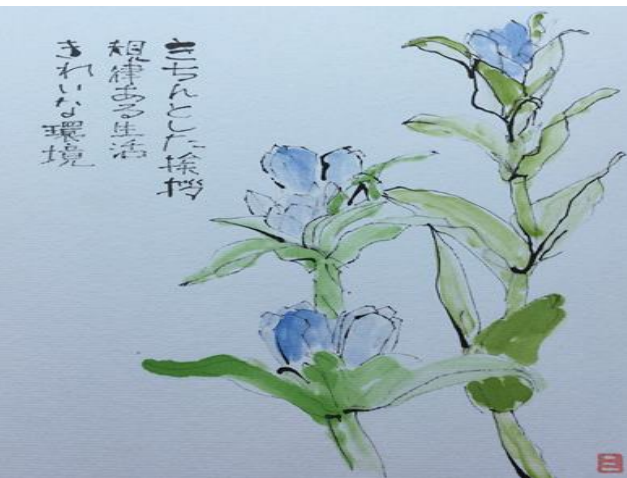 きちんとした挨拶
規律ある生活
きれいな環境
三